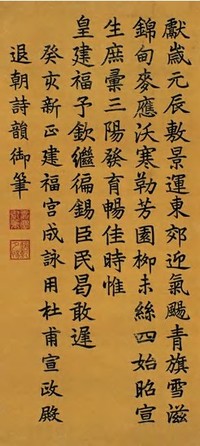 獻歲元辰敷景運東郊迎氣颺青旗雪滋
錦甸麥應沃寒勒芳園柳未絲四始昭宣
生庶彙三陽發育暢佳時惟
皇建福予欽繼徧錫臣民曷敢遲
癸亥新正建福宮成詠用杜甫宣政殿
退朝詩韻御筆